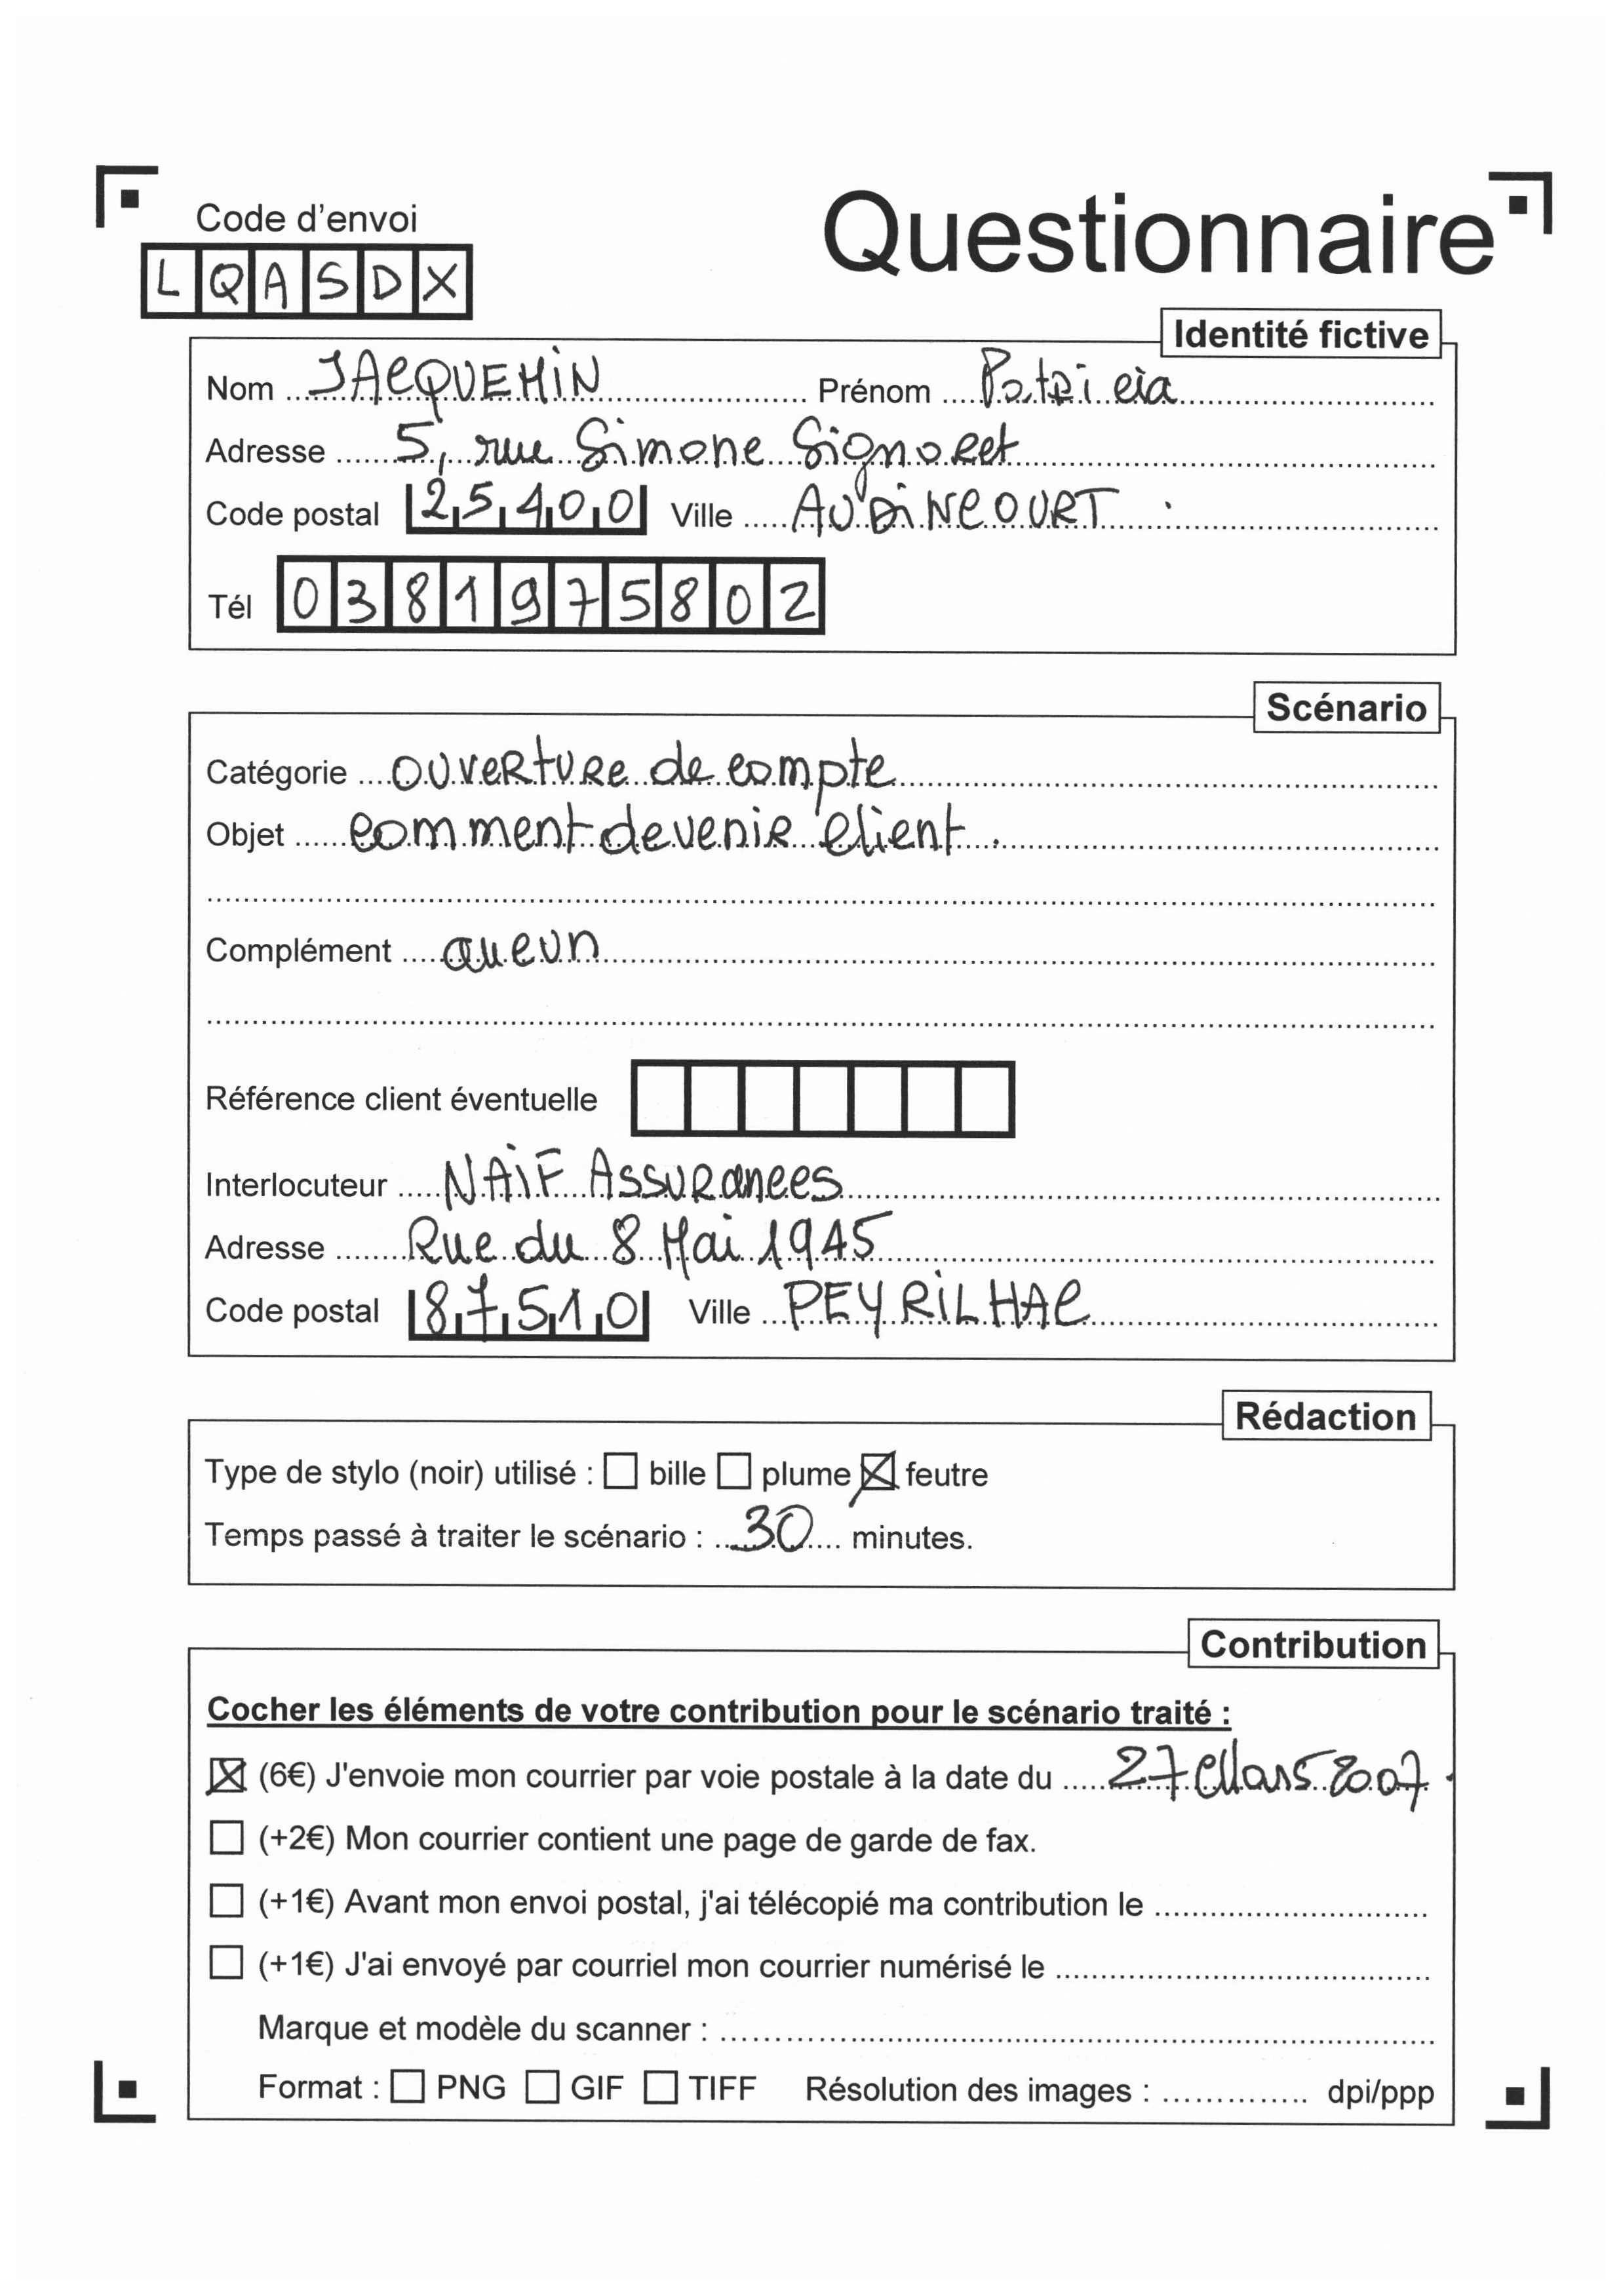 Code d'envoi
Questionnaire
LQASDX
Identité fictive
Nom JACQUEMIN Prénom Patricia
Adresse 5, rue Simone Signoret
Code postal 25400 Ville AUDINCOURT.
Tél 0381975802
Scénario
Catégorie ouverture de compte
Objet comment devenir client.
Complément aucun
Référence client éventuelle
Interlocuteur NAIF Assurances
Adresse Rue du 8 Mai 1945
Code postal 87510 Ville PEYRILHAC
Rédaction
Type de stylo (noir) utilisé : ☐ bille ☐ plume ☒ feutre
Temps passé à traiter le scénario : 30 minutes.
Contribution
Cocher les éléments de votre contribution pour le scénario traité :
☒ (6€) J'envoie mon courrier par voie postale à la date du 27 Mars 2007.
☐ (+2€) Mon courrier contient une page de garde de fax.
☐ (+1€) Avant mon envoi postal, j'ai télécopié ma contribution le
☐ (+1€) J'ai envoyé par courriel mon courrier numérisé le
Marque et modèle du scanner :
Format : ☐ PNG ☐ GIF ☐ TIFF Résolution des images : dpi/ppp